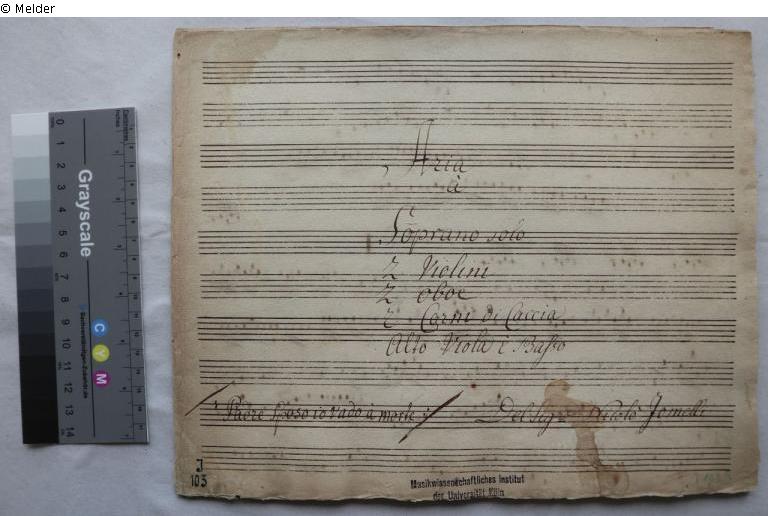 © Melder
Aria
à
Soprano solo
2 Violini
2 oboe
2 Corni di Caccia
Alto Viola è Basso
Padre Sposo io vado à morte
Del Sigr. Nicolò Jomelli
J
103
Musikwissenschaftliches Institut
der Universität Köln
Grayscale
0 1 2 3 4 5 6 7 8 9 10 11 12 13 14
C
Y
M
Centimetres
Inches